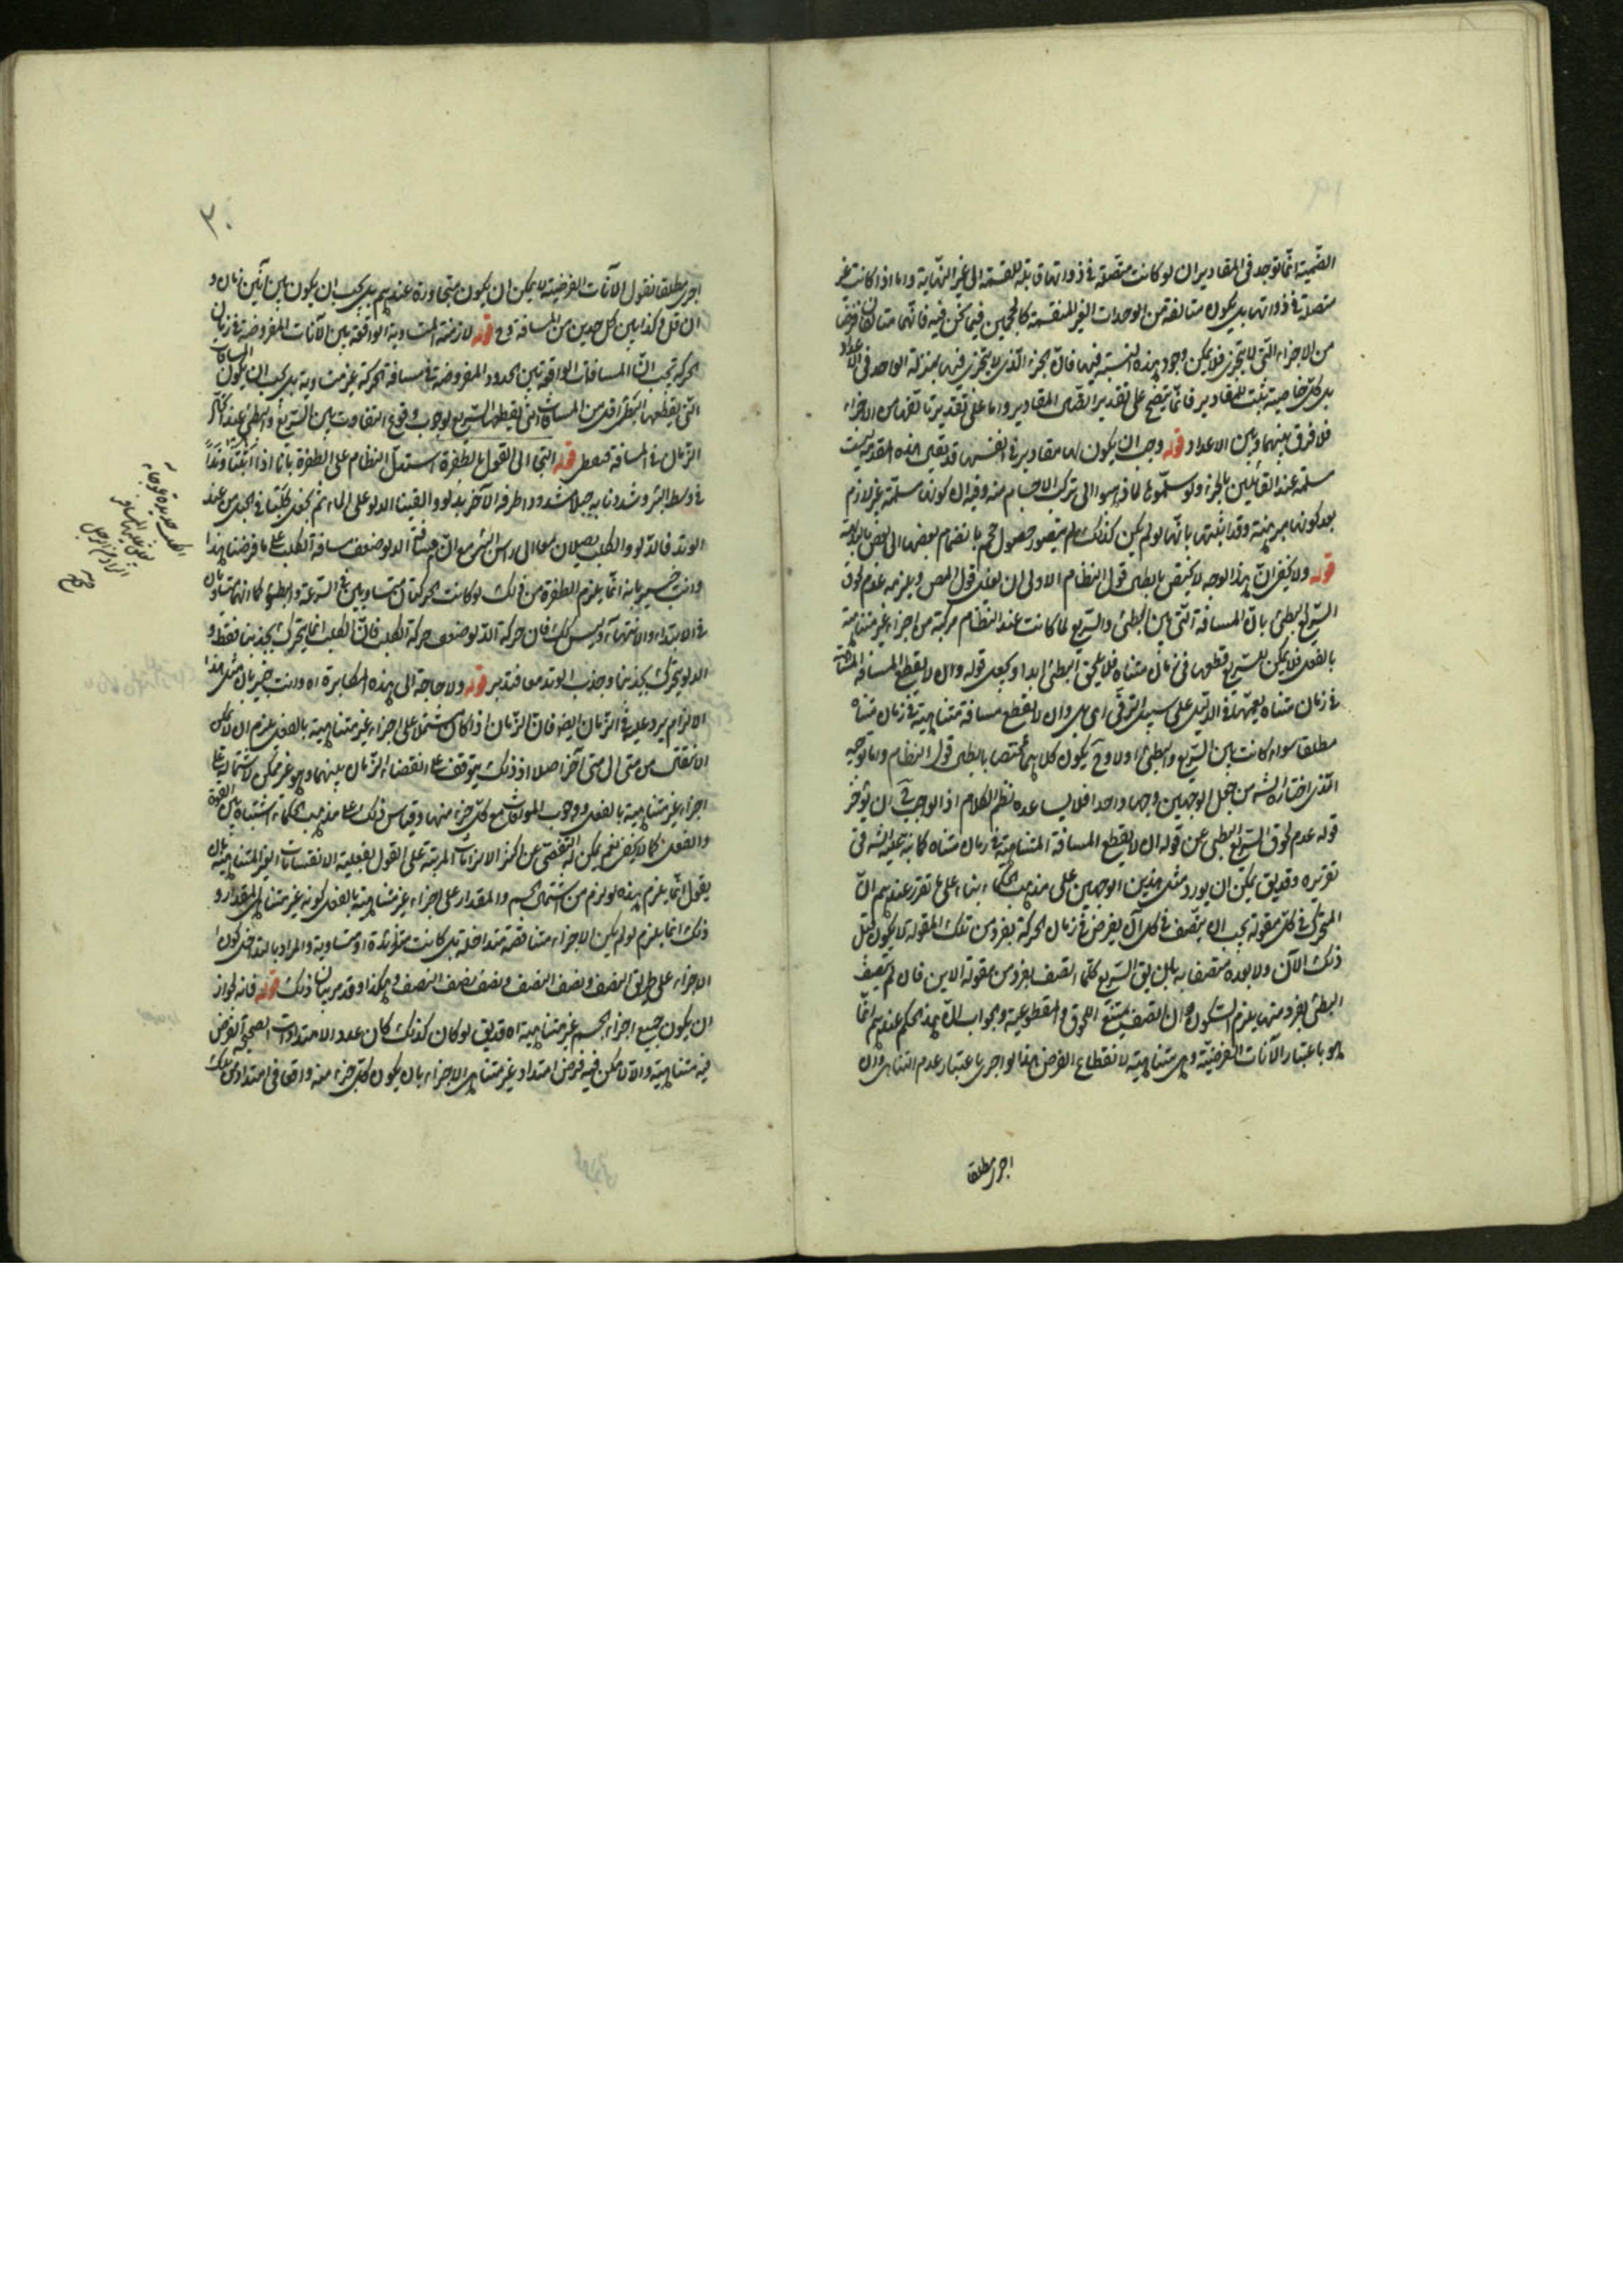 الصمية انما توجد فى المقادير ان لو كانت متصلة فى ذواتها قابلة للقسمة الى غير النهاية واما اذا كانت غير
متصلة فى ذواتها بل يكون متالفة من الوحدات الغير المنقسمة كالجسمين فيما نحن فيه فانهما متالفان فرضا
من الاجزاء التى لا يتجزى فلا يمكن وجود هذه النسبة فيها فان الجزء الذى لا يتجزى فيها بمنزلة الواحد فى الاعداد
بل كل خاصية تثبت للمقادير فانما يتضح على تقدير اتصال المقادير واما على تقدير تالفها من الاجزاء
فلا فرق بينها وبين الاعداد قوله وجب ان يكون لها مقادير فى انفسها قد يقال هذه المقدمة ليست
مسلمة عند القائلين بالجزء ولو سلموها لما ذهبوا الى تركب الاجسام منه وفيه ان كونها مسلمة غير لازم
بعد كونها مبرهنة وقد اثبتها بانها لو لم يكن كذلك لم يتصور حصول حجم بانضمام بعضها الى بعض بالبديهة
قوله ولا يخفى ان هذا الوجه لا يختص بابطال قول النظام الاولى ان يقال قول المص ويلزمه عدم لحوق
السريع البطئ بان المسافة التى بين البطئ والسريع لما كانت عند النظام مركبة من اجزاء غير متناهية
بالفعل فلا يمكن للسريع قطعها فى زمان متناه فلا يلحق البطئ ابدا ويجعل قوله وان لا يقطع المسافة المتناهية
فى زمان متناه تعميما فى الدليل على سبيل الترقى اى بل وان لا يقطع مسافة متناهية فى زمان متناه
مطلقا سواء كانت بين السريع والبطئ او لا وح يكون كلاهما مختصا بابطال قول النظام واما توجيه
الذى اختاره الش من جعل الوجهين وجها واحدا فلا يساعده نظم الكلام اذ الواجب ح ان يؤخر
قوله عدم لحوق السريع البطئ عن قوله ان لا يقطع المسافة المتناهية فى زمان متناه كما نبه عليه الش فى
تقريره وقد يق يمكن ان يورد مثل هذين الوجهين على مذهب الحكماء بناء على ما تقرر عندهم ان
المتحرك فى كل مقولة يجب ان يتصف فى كل آن يفرض فى زمان الحركة بفرد من تلك المقولة لا يكون قبل
ذلك الآن ولا بعده متصفا به بان يق السريع كلما اتصف بفرد من مقولة الاين فان لم يتصف
البطئ بفرد منها يلزم السكون وان اتصف يمتنع اللحوق والمقطوعية والجواب ان هذا الحكم عندهم انما
هو باعتبار الآنات الفرضية وهى متناهية لانقطاع الفرض هذا لو اجرى باعتبار عدم التناهى وان
اجرى مطلقا
٢٠
اجرى مطلقا نقول الآنات الفرضية لا يمكن ان يكون متجاورة عندهم بل يجب ان يكون بين آنين زمان و
ان قل وكذا بين كل حدين من المسافة وح قوله لازمنة المتساوية الواقعة بين الآنات المفروضة فى زمان
الحركة يجب ان المسافات الواقعة بين الحدود المفروضة فى مسافة الحركة غير متساوية بل يجب ان يكون المسافات
التى يقطعها البطئ اقل من المسافات التى يقطعها السريع لوجوب وقوع التفاوت بين السريع والبطئ عند اتحاد
الزمان فى المسافة قوله التجأ الى القول بالطفرة استدل النظام على الطفرة بانا اذا اثبتنا وتدا
فى وسط البئر وشددنا به حبلا مشدودا طرفه الآخر بدلو والقينا الدلو على الماء ثم نجعل كلبا فى الحبل من عند
الوتد فالدلو والكلب يصلان معا الى راس البئر مع ان مسافة الدلو ضعف مسافة الكلب على ما فرضنا هذا
وانت خبير بانه انما يلزم الطفرة من ذلك لو كانت الحركتان متساويتين فى السرعة والبطؤ كما انهما متساويان
فى الابتداء والانتهاء وليس كك فان حركة الدلو ضعف حركة الكلب فان الكلب انما يتحرك بجذبنا فقط و
الدلو يتحرك بجذبنا وجذب الوتد معا فتدبر قوله ولا حاجة الى هذه المكابرة اه وانت خبير بان مثل هذا
الالزام يرد عليه فى الزمان ايضا فان الزمان اذا كان مشتملا على اجزاء غير متناهية بالفعل يلزم ان لا يمكن
الانتقال من متى الى متى آخر اصلا اذ ذلك يتوقف على انقضاء الزمان بينهما وهو غير ممكن لاشتماله على
اجزاء غير متناهية بالفعل ووجوب الموافاة مع كل جزء منها وقياس ذلك على مذهب الحكماء اشتباه بين القوة
والفعل كما لا يخفى نعم يمكن له التفصى عن اكثر الالزامات المرتبة على القول بفعلية الانقسامات الغير المتناهية بان
يقول انما يلزم هذه لو لزم من اشتمال الجسم والمقدار على اجزاء غير متناهية بالفعل كونه غير متناهى المقدار و
ذلك انما يلزم لو لم يكن الاجزاء متناقصة متداخلة بل كانت متزائدة او متساوية والمراد بالتداخل كون
الاجزاء على طريق النصف ونصف النصف ونصف نصف النصف وهكذا وقد مر بيان ذلك قوله فانه لجواز
ان يكون جميع اجزاء الجسم غير متناهية اه قد يق لو كان كذلك كان عدد الامتدادات الصحيحة الفرض
فيه متناهية والا لامكن فيه فرض امتداد غير متناهى الاجزاء بان يكون كل جزء منه واقعا فى امتداد من تلك